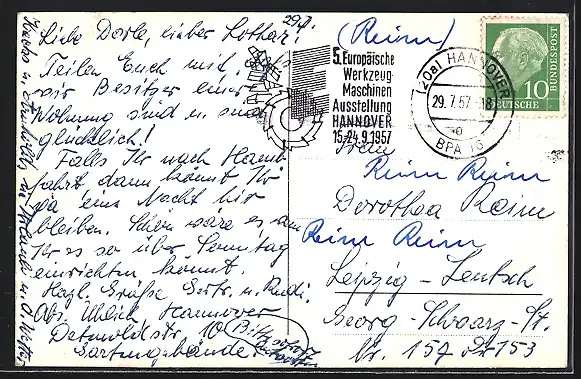 29.7. (Reim)
Liebe Dorle, lieber Lothar!
Teilen Euch mit, daß
wir Besitzer einer
Wohnung sind u. sind
glücklich!
Falls Ihr nach Hamb.
fahrt dann könnt Ihr
ja eine Nacht hier
bleiben. Schön wäre es wenn
Ihr es so über Sonntag
einrichten könnt.
Herzl. Grüße Gertr. u. Rudi.
Abs. Uhlich Hannover
Detmoldstr. 10
Gartengebäude
Bitte sofort
5. Europäische
Werkzeug
Maschinen
Ausstellung
HANNOVER
15.-24.9.1957
(20a) HANNOVER
29.7.57.-18
BPA 16
DEUTSCHE BUNDESPOST
10
Reim Reim
Dorothea Reim
Reim Reim
Leipzig - Leutzsch
Georg-Schwarz-St.
Nr. 157 153